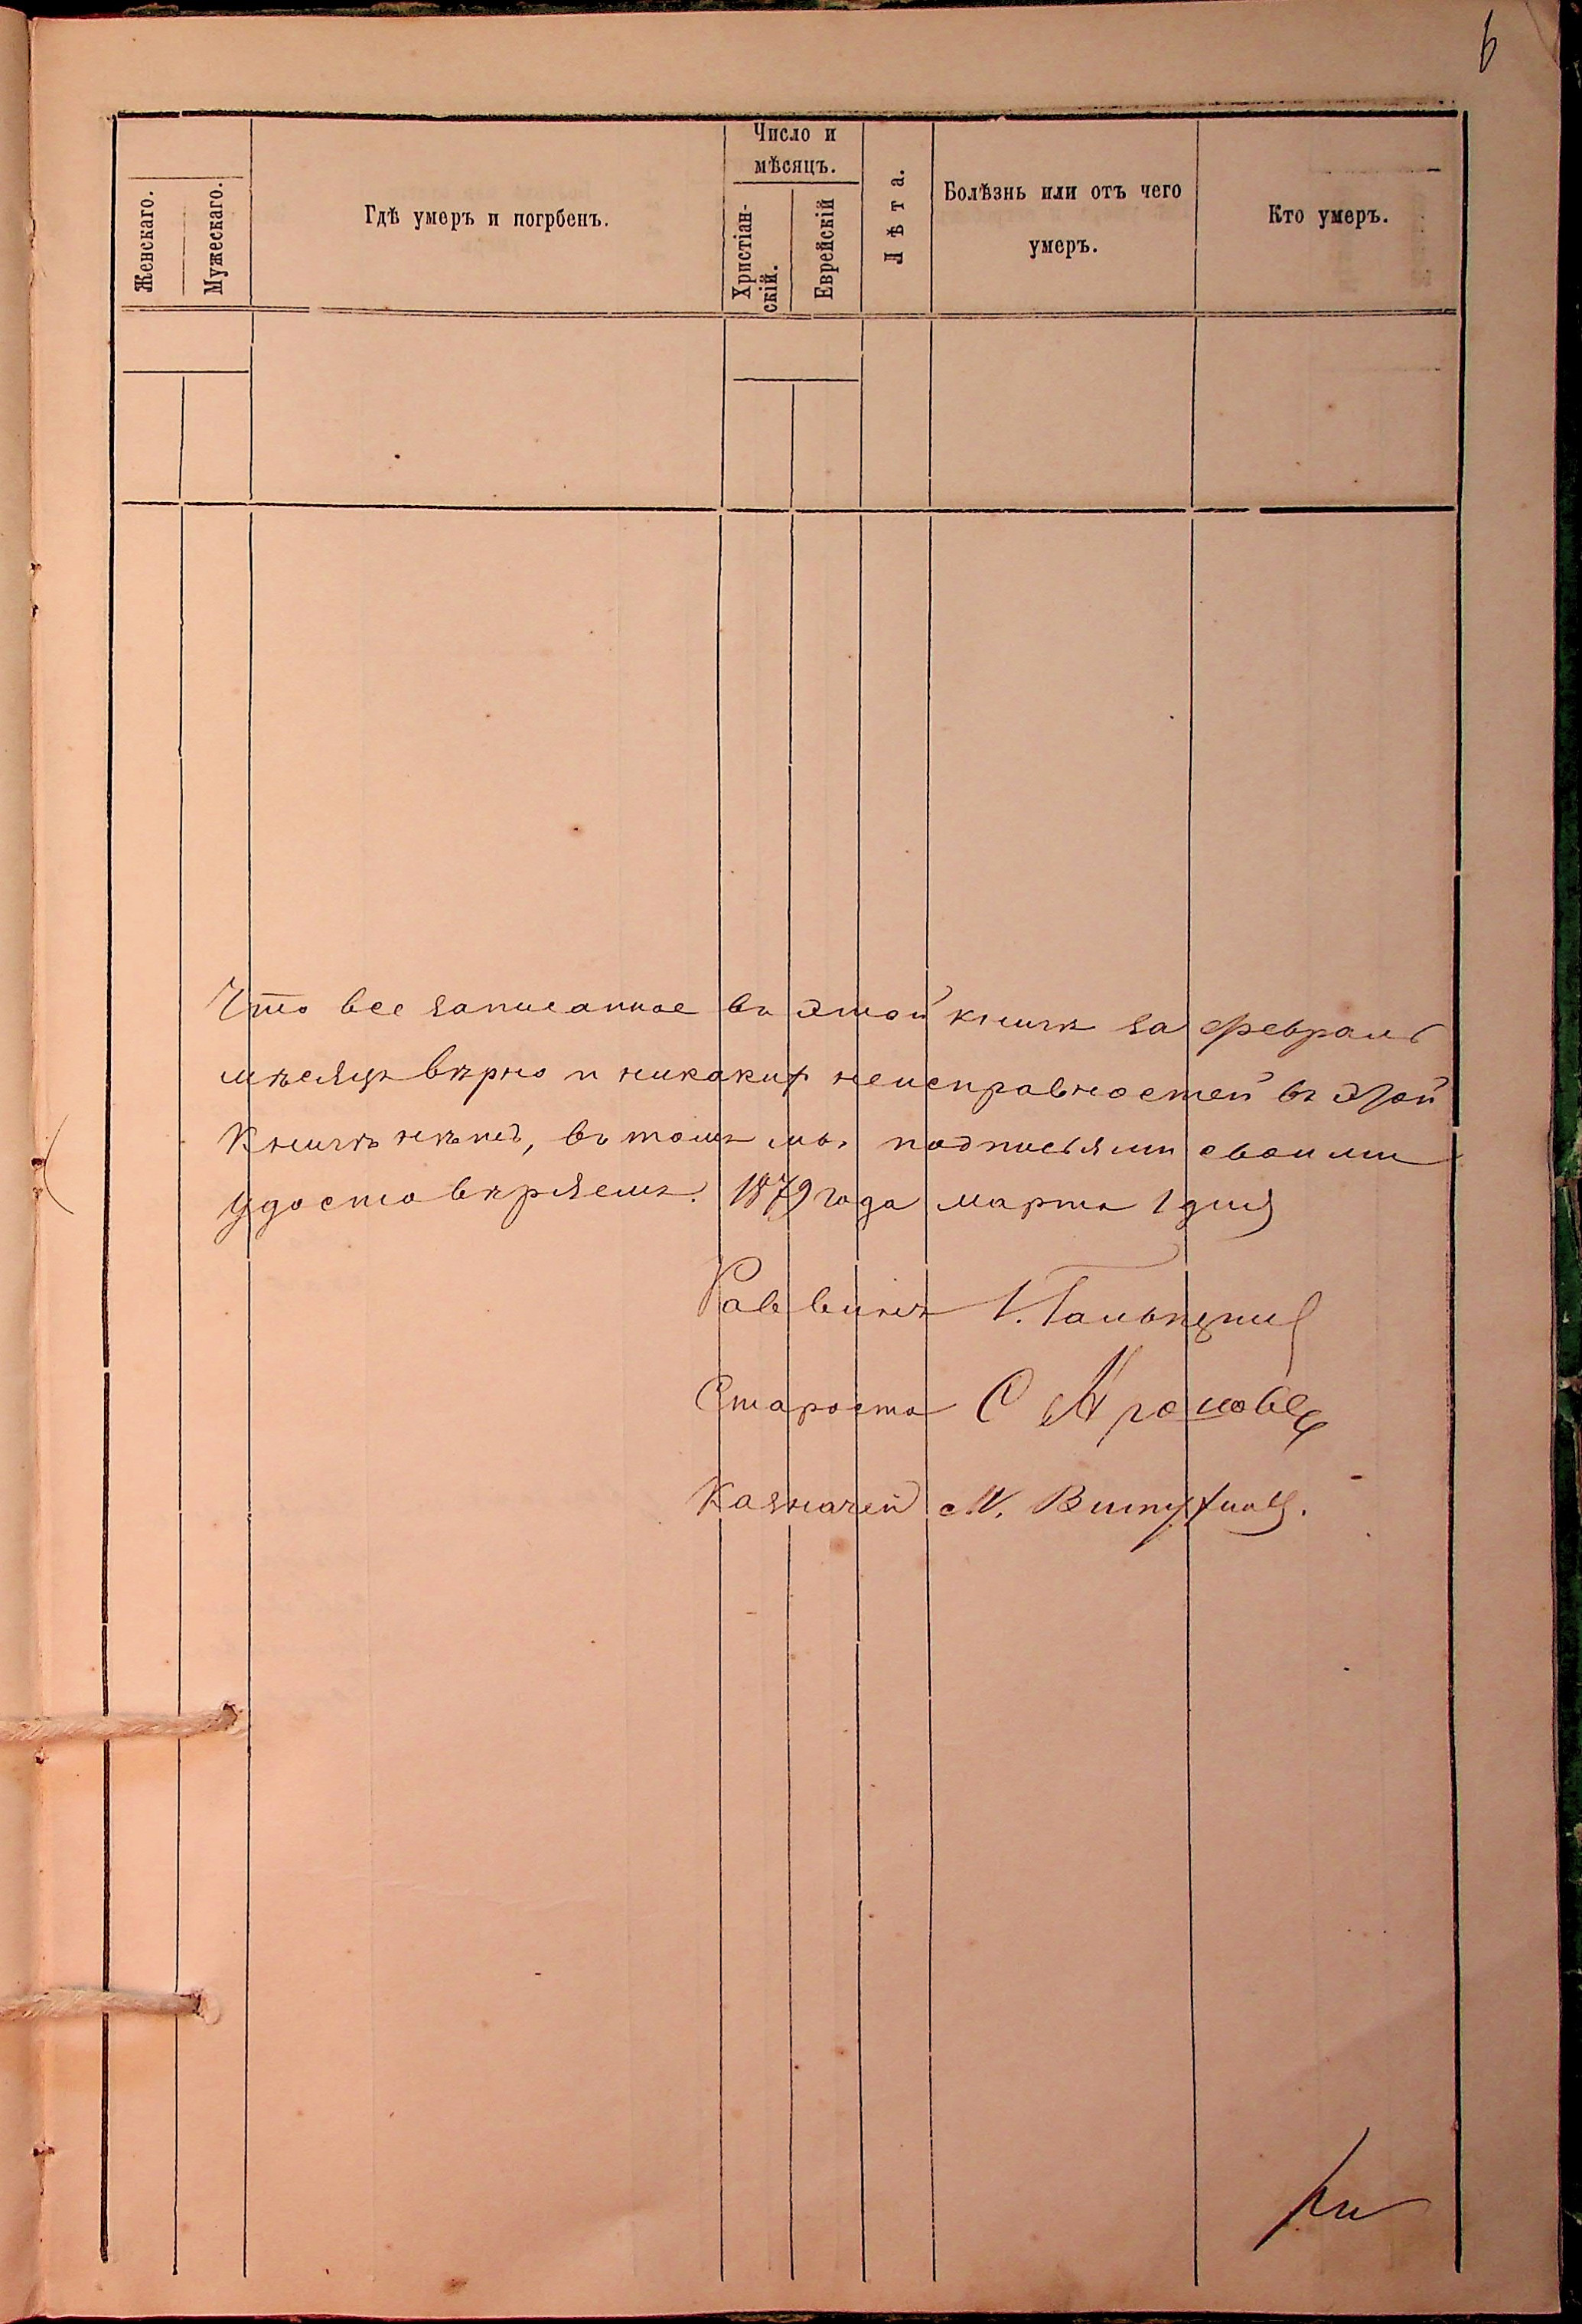 6
Женскаго.
Мужескаго.
Гдѣ умеръ и погрбенъ.
Число и
мѣсяцъ.
Христіан-
скій.
Еврейскій
Лѣта.
Болѣзнь или отъ чего
умеръ.
Кто умеръ.
Что все записанное въ этой книгѣ за февраль
мѣсяцъ вѣрно и никаких неисправностей въ этой
Книгѣ нѣтъ, въ томъ мы подписьями своими
удостовѣряемъ. 1879 года марта 1 дня
Раввинъ
Староста С
Казначей М.